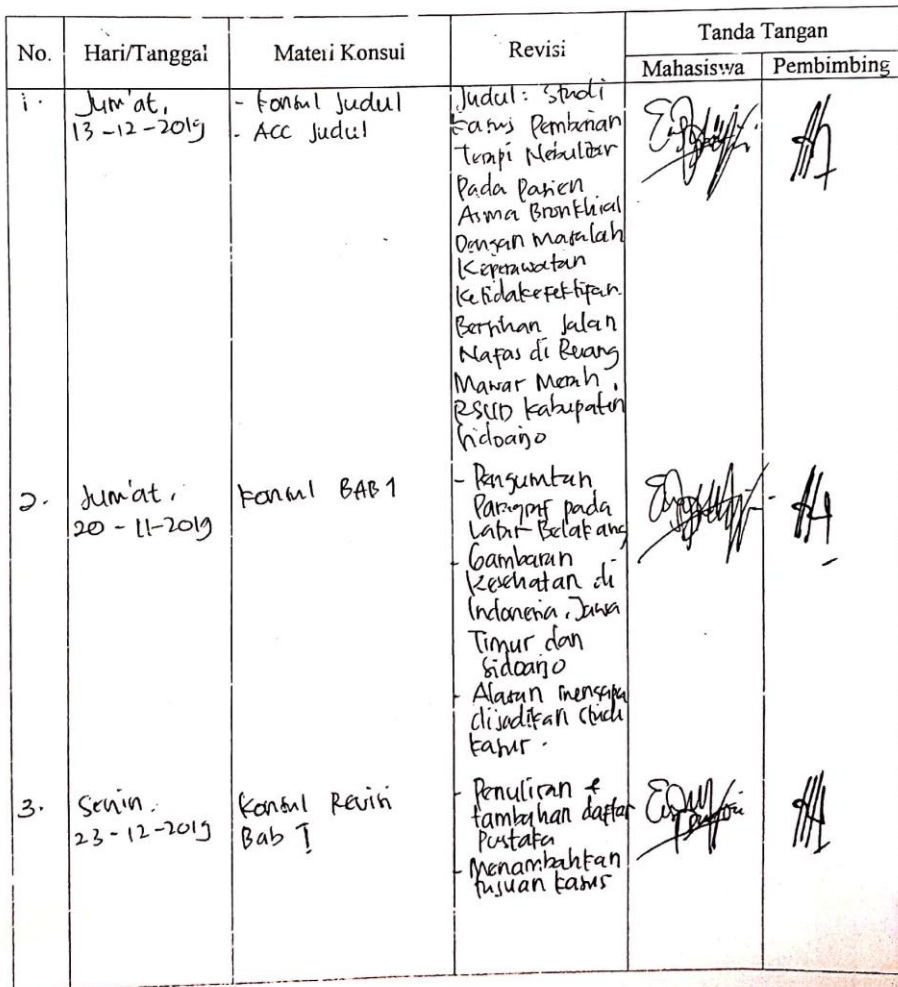 No. Hari/Tanggal Materi Konsul Revisi Tanda Tangan
Mahasiswa Pembimbing
1. Jum'at, 13-12-2019
- Konsul Judul
- Acc Judul
Judul: Studi
Kasus Pemberian
Terapi Nebulizer
Pada Pasien
Asma Bronkhial
Dengan Masalah
Keperawatan
Ketidakefektifan
Bersihan Jalan
Nafas di Ruang
Mawar Merah,
RSUD Kabupaten
Sidoarjo
2. Jum'at, 20-11-2019
Konsul BAB 1
- Pengurutan
Paragraf pada
Latar Belakang
- Gambaran
Kesehatan di
Indonesia, Jawa
Timur dan
Sidoarjo
- Alasan mengapa
dijadikan studi
kasus.
3. Senin, 23-12-2019
Konsul Revisi
Bab I
- Penulisan &
tambahan daftar
Pustaka
- Menambahkan
tujuan kasus